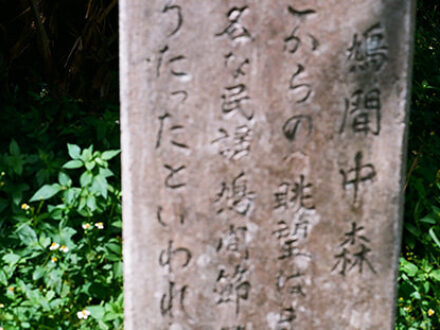 鳩間中森
からの眺望は
名な民謡鳩間節
うたったといわれ